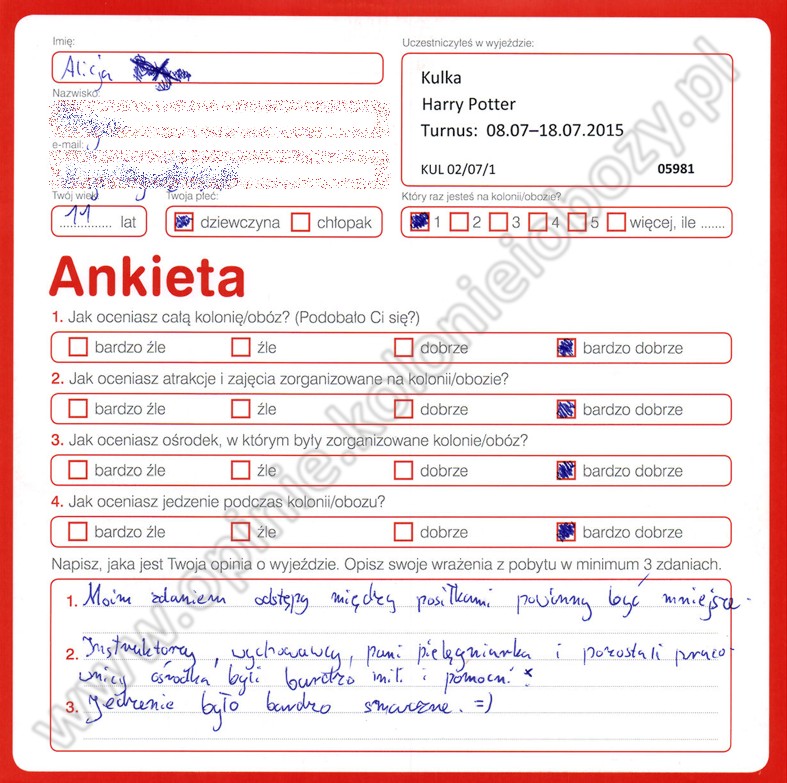 Imię:
Uczestniczyłeś w wyjeździe:
Alicja
Kulka
Nazwisko:
Harry Potter
Turnus: 08.07–18.07.2015
e-mail:
KUL 02/07/1 05981
Twój wiek Twoja płeć: Który raz jesteś na kolonii/obozie?
11 lat dziewczyna chłopak 1 2 3 4 5 więcej, ile .......
Ankieta
1. Jak oceniasz całą kolonię/obóz? (Podobało Ci się?)
bardzo źle źle dobrze bardzo dobrze
2. Jak oceniasz atrakcje i zajęcia zorganizowane na kolonii/obozie?
bardzo źle źle dobrze bardzo dobrze
3. Jak oceniasz ośrodek, w którym były zorganizowane kolonie/obóz?
bardzo źle źle dobrze bardzo dobrze
4. Jak oceniasz jedzenie podczas kolonii/obozu?
bardzo źle źle dobrze bardzo dobrze
Napisz, jaka jest Twoja opinia o wyjeździe. Opisz swoje wrażenia z pobytu w minimum 3 zdaniach.
1. Moim zdaniem odstępy między posiłkami powinny być mniejsze.
2. Instruktorzy, wychowawcy, pani pielęgniarka i pozostali praco-
wnicy ośrodka byli bardzo mili i pomocni.
3. Jedzenie było bardzo smaczne. =)
www.opinie.kolonieiobozy.pl